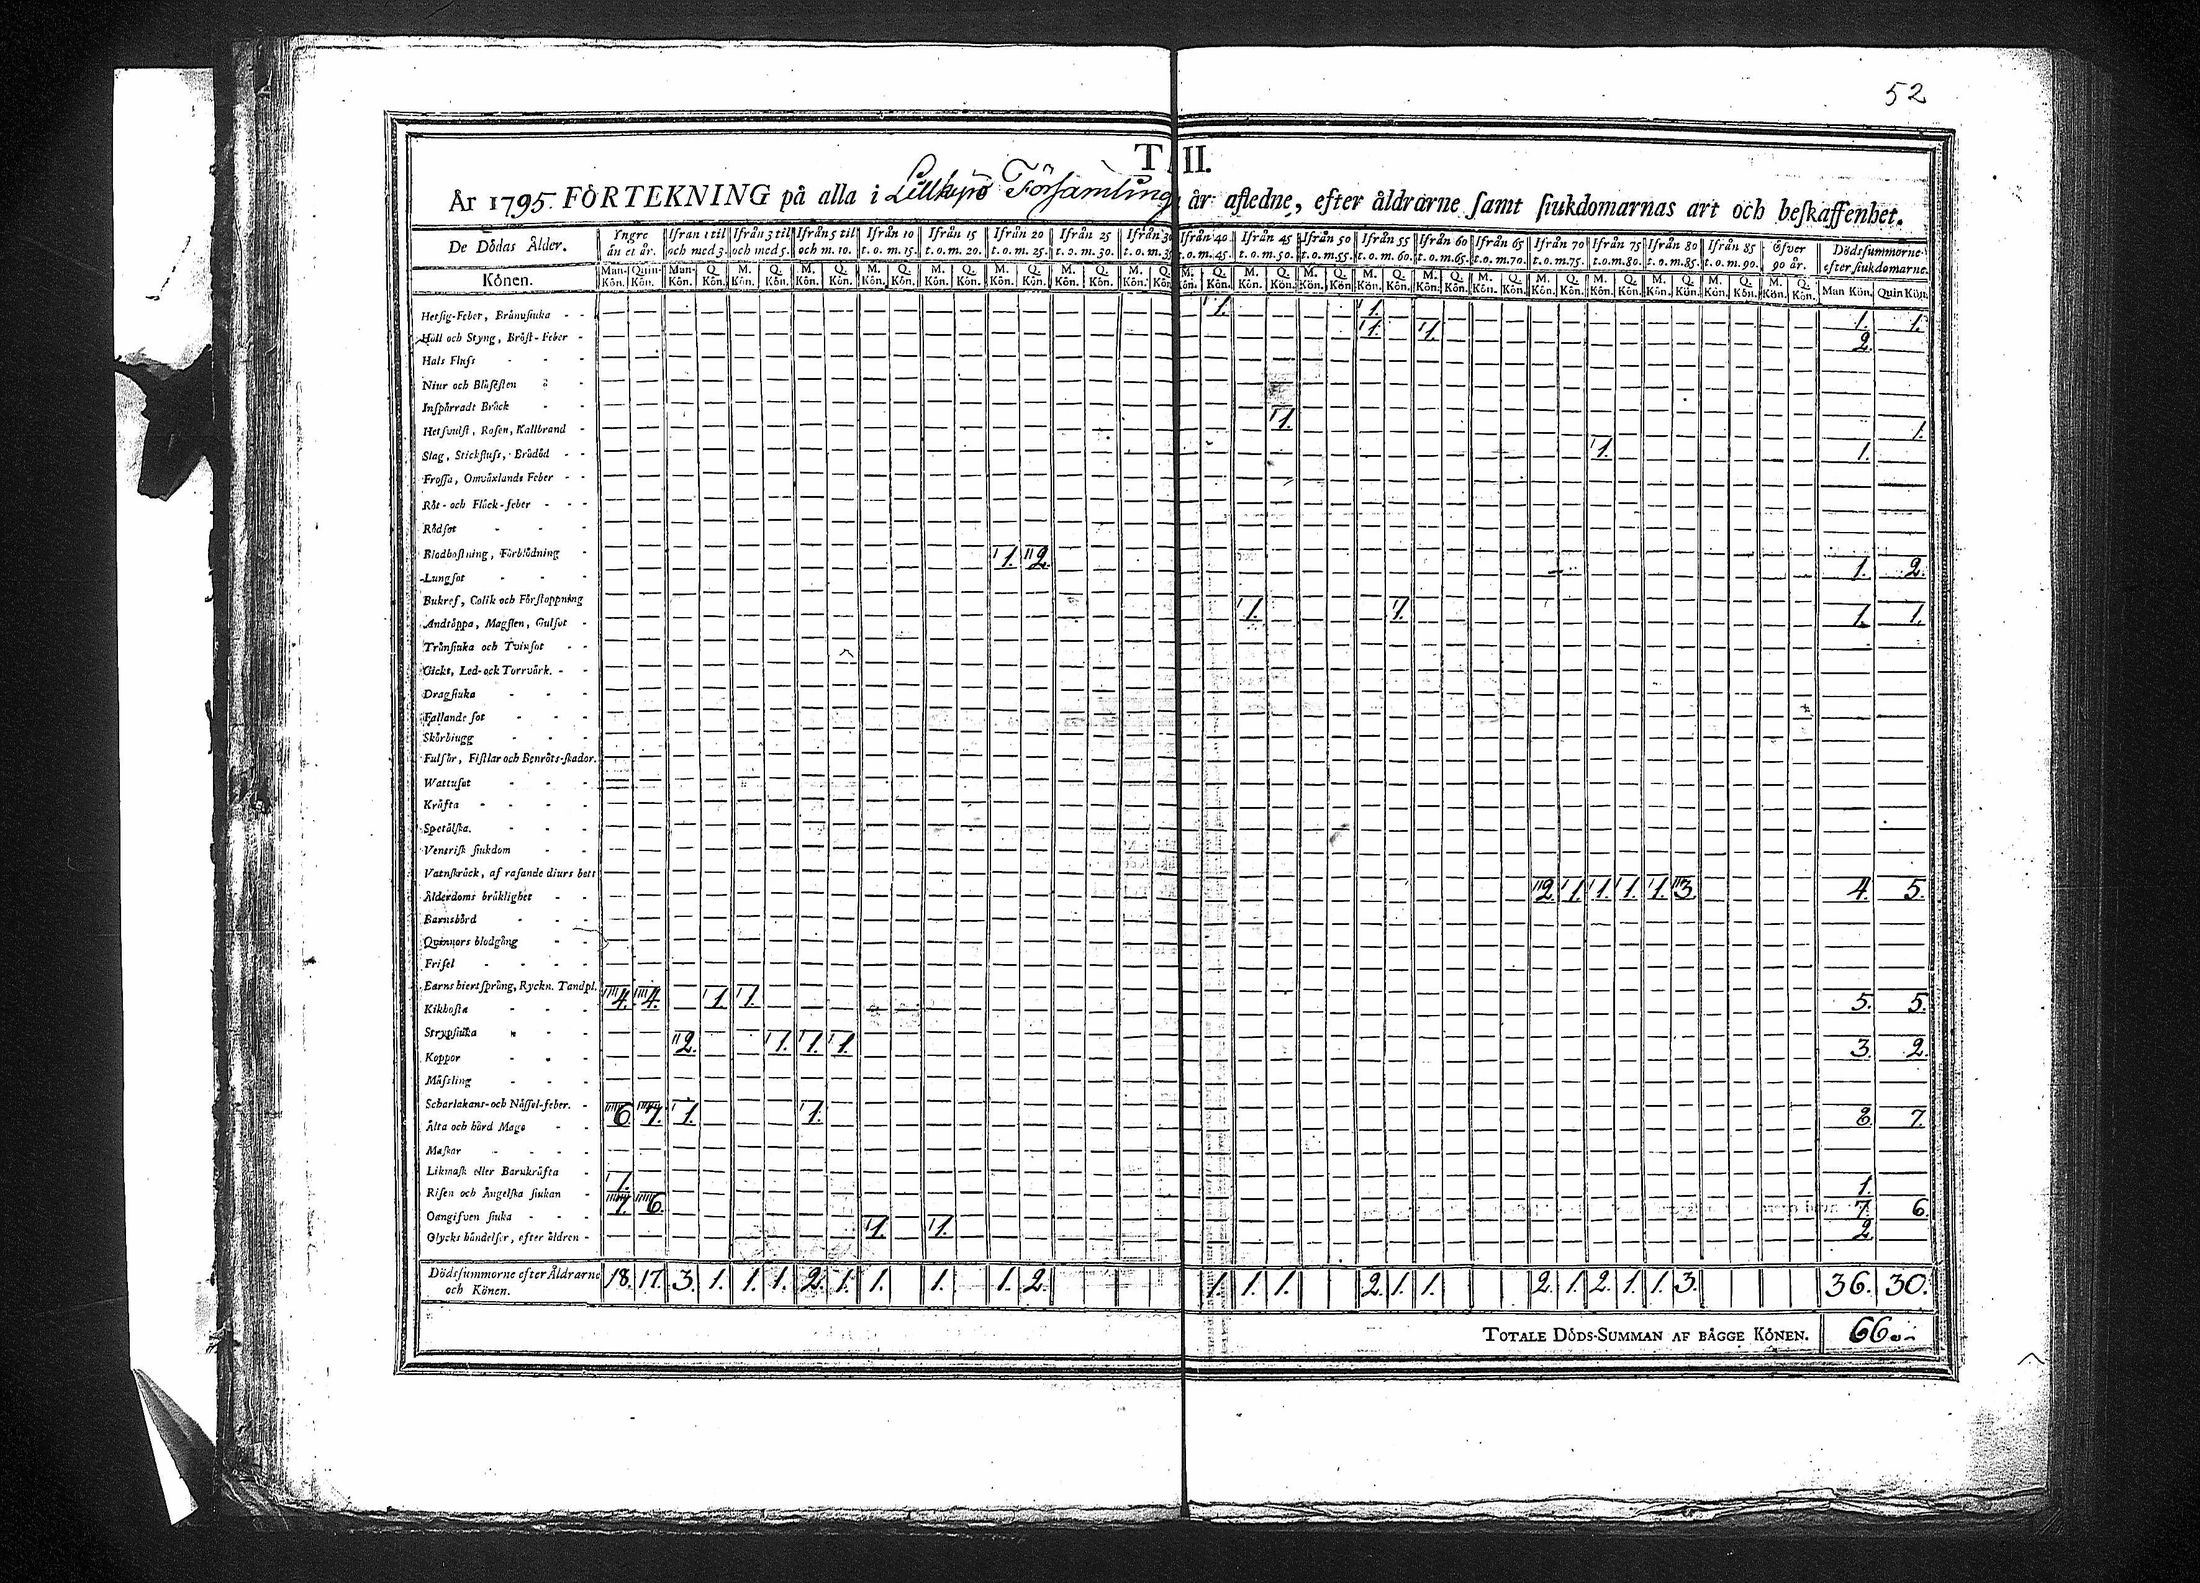 52
T II.
År 1795. FÖRTEKNING på alla i Lillkyro Församling år afledne, efter åldrarne samt siukdomarnas art och beskaffenhet.
De Dödas Ålder. Yngre än et år. Ifrån 1 til och med 3. Ifrån 3 til och med 5. Ifrån 5 til och m. 10. Ifrån 10 t. o. m. 15. Ifrån 15 t. o. m. 20. Ifrån 20 t. o. m. 25. Ifrån 25 t. o. m. 30. Ifrån 30 t. o. m. 35 Ifrån 40 t. o. m. 45. Ifrån 45 t. o. m. 50. Ifrån 50 t. o. m. 55. Ifrån 55 t. o. m. 60. Ifrån 60 t. o. m. 65. Ifrån 65 t. o. m. 70. Ifrån 70 t. o. m. 75. Ifrån 75 t. o. m. 80. Ifrån 80 t. o. m. 85. Ifrån 85 t. o. m. 90. Öfver 90 år. Dödssummorne efter siukdomarne.
Könen. Man-Kön. Quin-Kön. Man-Kön. Q. Kön. M. Kön. Q. Kön. M. Kön. Q. Kön. M. Kön. Q. Kön. M. Kön. Q. Kön. M. Kön. Q. Kön. M. Kön. Q. Kön. M. Kön. Q. Kön. M. Kön. Q. Kön. M. Kön. Q. Kön. M. Kön. Q. Kön. M. Kön. Q. Kön. M. Kön. Q. Kön. M. Kön. Q. Kön. M. Kön. Q. Kön. M. Kön. Q. Kön. M. Kön. Q. Kön. M. Kön. Q. Kön. M. Kön. Q. Kön. Man Kön. Quin Kön.
Hetsig-Feber, Brännsiuka 1. 1. 1. 1.
Håll och Styng, Bröst-Feber 1. 1. 2.
Hals Fluss
Niur och Blåsesten
Inspärradt Bråck
Hetsvulst, Rosen, Kallbrand 1. 1.
Slag, Stickfluss, Brådöd 1. 1.
Frossa, Omväxlande Feber
Röt- och Fläck-feber
Rödsot
Blodhostning, Förblödning
Lungsot 1. 2. 1. 2.
Bukref, Colik och Förstoppning
Andtäppa, Magsten, Gulsot 1. 1. 1. 1.
Trånsiuka och Tvinsot
Gickt, Led- ock Torrvärk.
Dragsiuka
Fallande sot
Skörbiugg
Fulsår, Fistlar och Benröts-skador.
Wattusot
Kräfta
Spetälska.
Venerisk siukdom
Vatnskräck, af rasande diurs bett
Ålderdoms bräklighet 2. 1. 1. 1. 1. 3. 4. 5.
Barnsbörd
Quinnors blodgång
Frisel
Barns hiertsprång, Ryckn. Tandpl.
Kikhosta 4. 4. 1. 1. 5. 5.
Strypsiuka
Koppor 2. 1. 1. 1. 3. 2.
Mässling
Scharlakans- och Nässel-feber.
Älta och hård Mage 6. 7. 1. 1. 8. 7.
Maskar
Likmask eller Barnkräfta
Risen och Ängelska siukan 1. 1.
Oangifven siuka 7. 6. 7. 6.
Olycks händelser, efter åldren 1. 1. 2.
Dödssummorne efter Åldrarne och Könen. 18. 17. 3. 1. 1. 1. 2. 1. 1. 1. 1. 2. 1. 1. 1. 2. 1. 1. 2. 1. 2. 1. 1. 3. 36. 30.
TOTALE DÖDS-SUMMAN AF BÄGGE KÖNEN. 66.